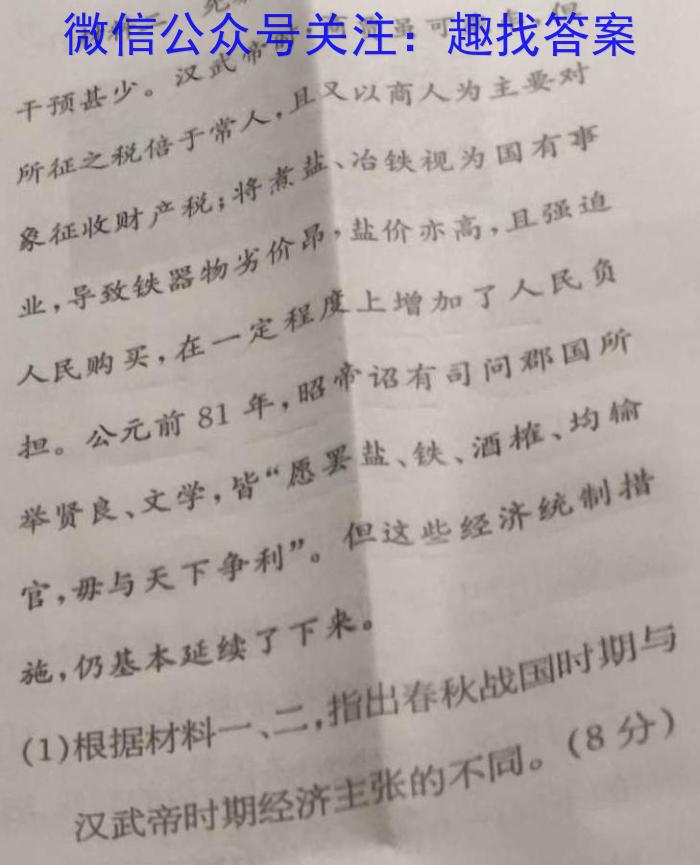 微信公众号关注：趣找答案
干预甚少。汉武帝时，商贾虽可
所征之税倍于常人，且又以商人为主要对
象征收财产税；将煮盐、冶铁视为国有事
业，导致铁器物劣价昂，盐价亦高，且强迫
人民购买，在一定程度上增加了人民负
担。公元前81年，昭帝诏有司问郡国所
举贤良、文学，皆“愿罢盐、铁、酒榷、均输
官，毋与天下争利”。但这些经济统制措
施，仍基本延续了下来。
(1)根据材料一、二，指出春秋战国时期与
汉武帝时期经济主张的不同。(8分)